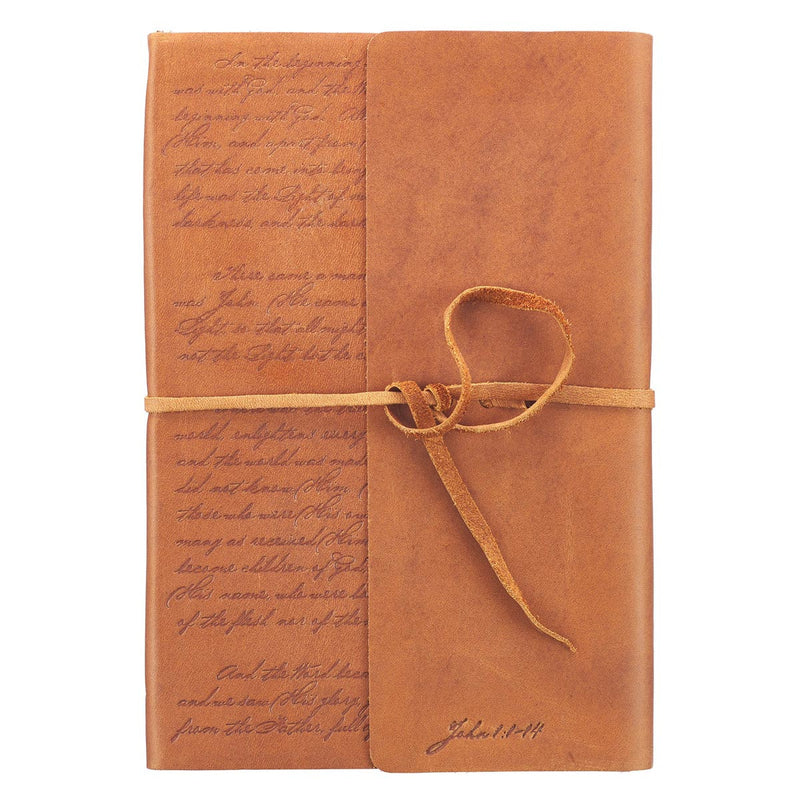 In the beginning
was with God, and the W
beginning with God. Al
Him, and apart from
that has come into bein
life was the Light of m
darkness, and the dark
There came a man
was John. He came
Light, so that all migh
not the Light but he c
world, enlightens every
and the world was made
did not know Him. H
those who were His own
many as received Him
become children of God,
His name, who were b
of the flesh nor of the
And the Word bec
and we saw His glory
from the Father, full of
John 1:1-14